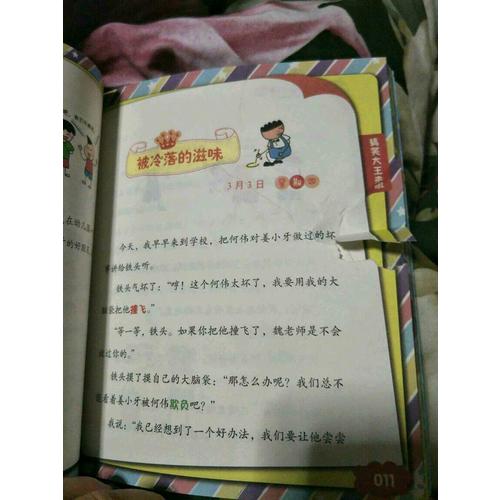 被冷落的滋味
3月3日 星期四
搞笑大王来啦
今天，我早早来到学校，把何伟对姜小牙做过的坏
事讲给铁头听。
铁头气坏了：“哼！这个何伟太坏了，我要用我的大
脑袋把他撞飞。”
“等一等，铁头。如果你把他撞飞了，魏老师是不会
放过你的。”
铁头摸了摸自己的大脑袋：“那怎么办呢？我们总不
能看着姜小牙被何伟欺负吧？”
我说：“我已经想到了一个好办法，我们要让他尝尝
011
在幼儿园
的好朋友